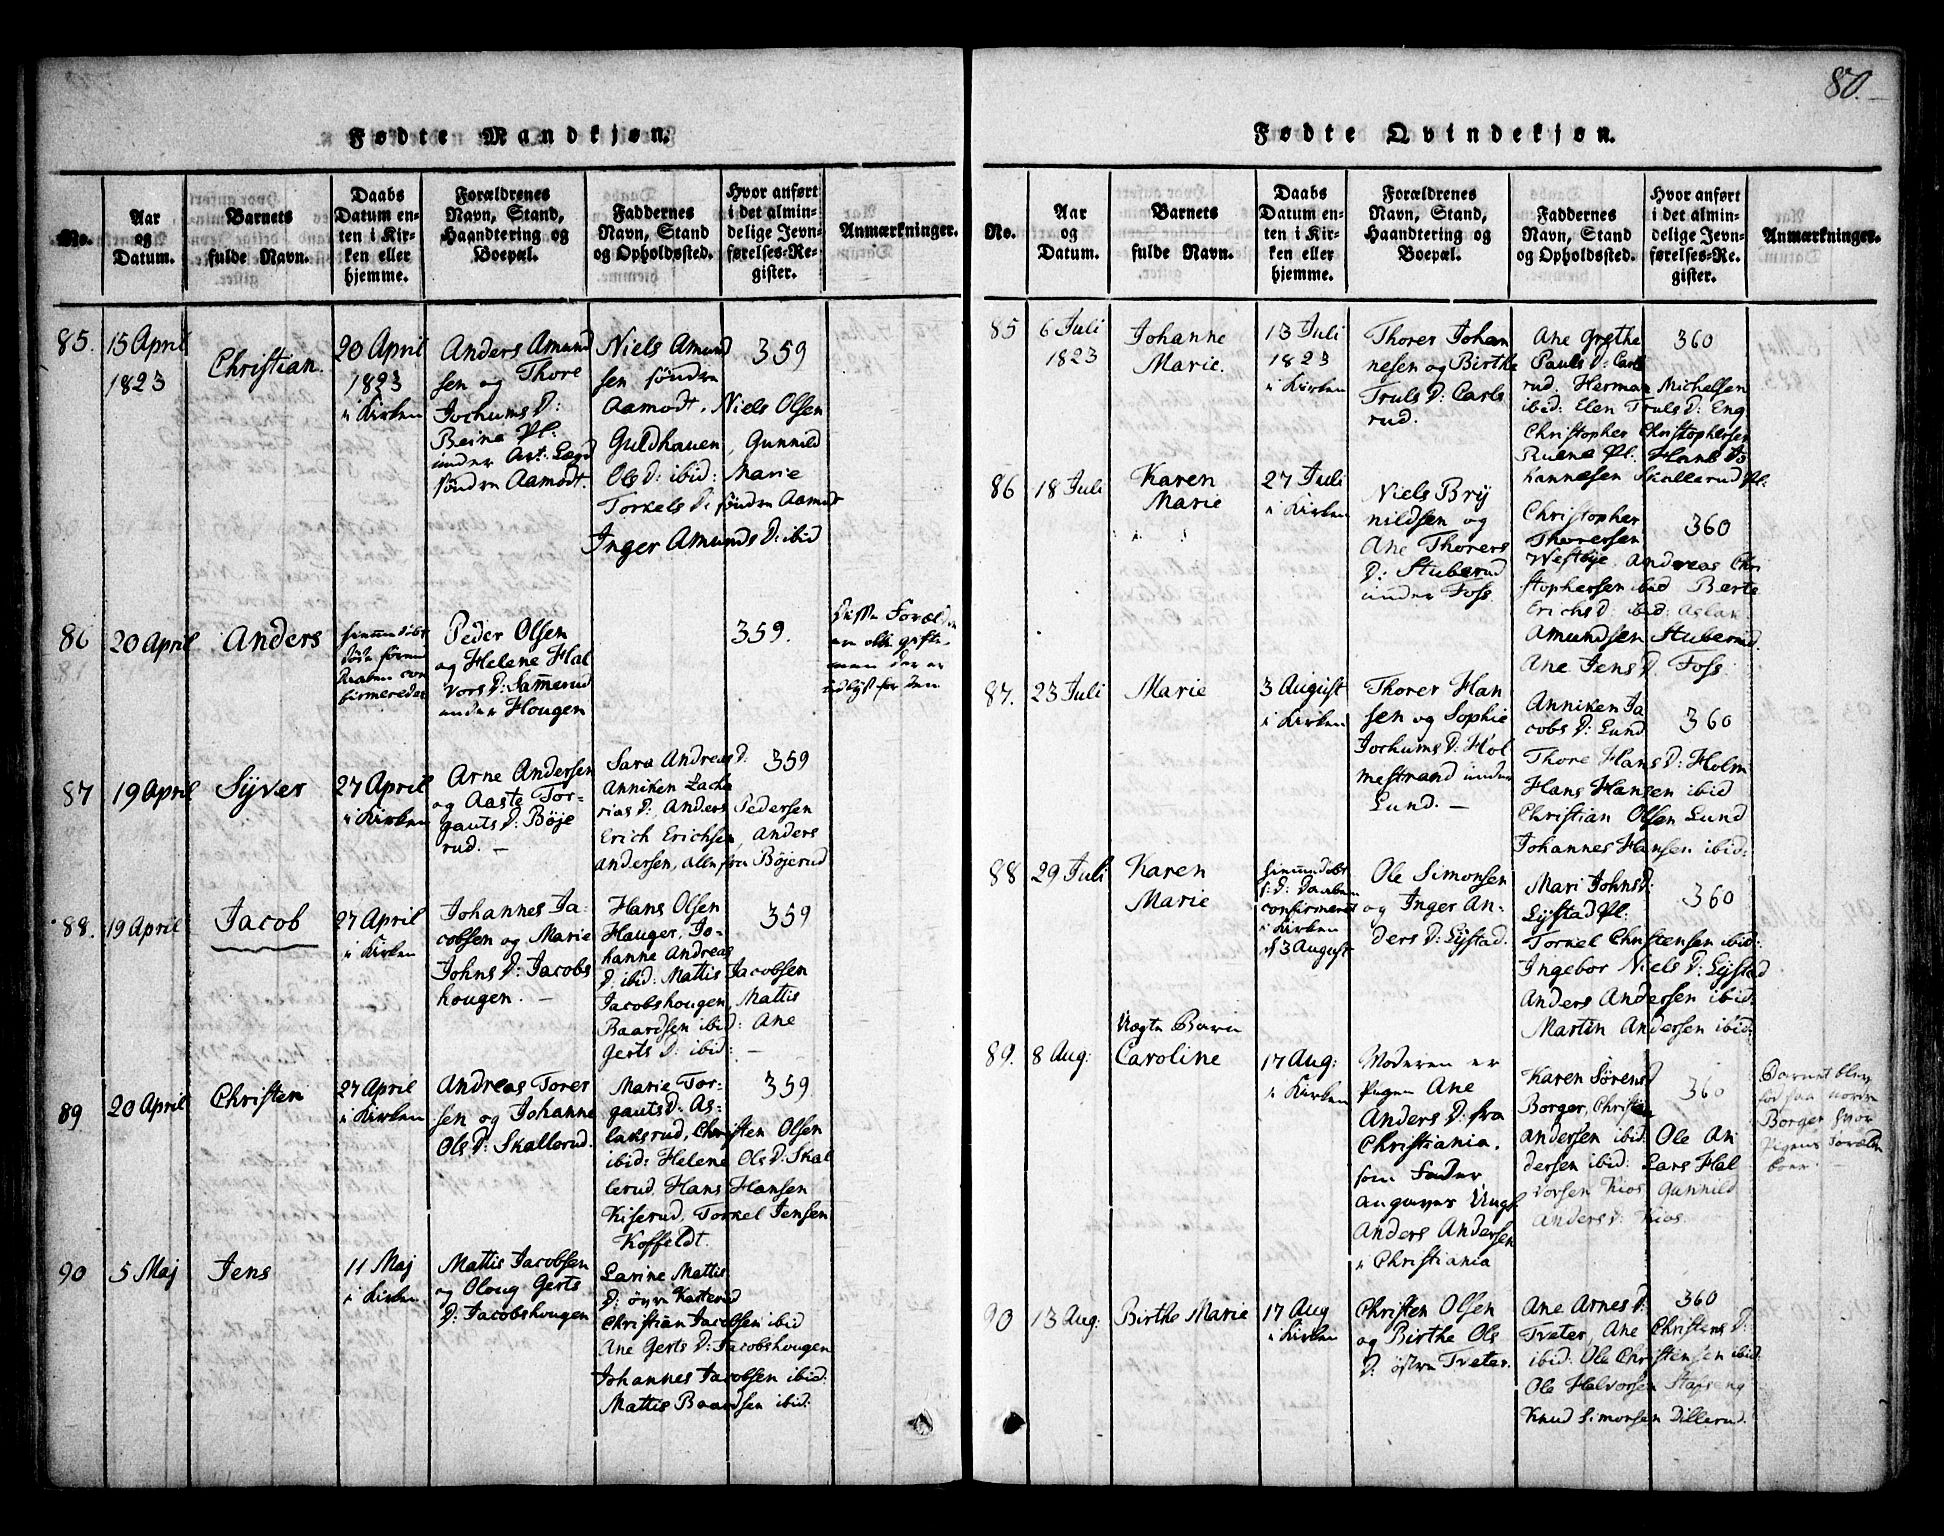 80.
Fødte Mandkjøn.
No.
Aar
og
Datum.
Barnets
fulde Navn.
Daabs
Datum en-
ten i Kir-
ken eller
hjemme.
Forældrenes
Navn, Stand,
Haandtering og
Boepæl.
Faddernes
Navn, Stand
og Opholdssted.
Hvor anført
i det almin-
delige Jevn-
førelses-Re-
gister.
Anmærkninger.
85.
15 April
1823
Christian.
20 April
1823
i Kirken
Anders Amund
sen og Thore
Jochums D:
Beina Pl:
under Art: Legd
søndre Aamodt.
Niels Amund
sen søndre
Aamodt, Niels Olsen
Guldhauen, Gunnild
Ols D: ibid: Marie
Torkels D: søndre Aamodt
Inger Amunds D: ibid
359
86
20 April
Anders
Peder Olsen
og Helene Hal
vors D: Sammerud
under Hougen
359.
Disse Foræld
er gifte
men der er
udlyst for dem
87
19 April
Syver
27 April
i Kirken
Arne Andersen
og Aaste Tor-
gauts D: Bøje
rud. —
Sara Andreas D:
Anniken Zacha
rias D: Anders Pedersen
Erich Erichsen, Anders
Andersen, alle fra Bøjerud
359
88.
19 April
Jacob
27 April
i Kirken
Johannes Ja-
cobsen og Marie
Johns D: Jacobs
hougen. —
Hans Olsen
Hauger, Jo-
hanne Andreas
D: ibid: Mattis Jacobsen
Jacobshougen, Mattis
Baardsen ibid: Ane
Gerts D: ibid: —
359
89
20 April
Christen
27 April
i Kirken
Andreas Torer
sen og Johanne
Ols D: Skallerud.
Marie Tor-
gauts D: As-
laksrud, Christen Olsen
ibid: Helene Ols D: Skal
lerud, Hans Hansen
Kiserud, Torkel Jensen
Koffeldt.
359
90
5 Maj
Jens
11 Maj
i Kirken
Mattis Jacobsen
og Oloug Gerts
D: Jacobshougen
Larine Mattis
D: øvre Kasterud
Christian Jacobsen ibid
Ane Gerts D: Jacobshougen
Johannes Jacobsen ibid:
Mattis Baardsen ibid:
Fødte Qvindekjøn.
No.
Aar
og
Datum.
Barnets
fulde Navn.
Daabs
Datum en-
ten i Kir-
ken eller
hjemme.
Forældrenes
Navn, Stand,
Haandtering og
Boepæl.
Faddernes
Navn, Stand
og Opholdssted.
Hvor anført
i det almin-
delige Jevn-
førelses-Re-
gister.
Anmærkninger.
85
6 Juli
1823
Johanne
Marie.
13 Juli
1823
i Kirken
Thorer Johan
nesen og Birthe
Truls D: Carls
rud.
Ane Grethe
Pauls D: Carls
rud. Herman Michelsen
ibid: Elen Truls D: Eng
Christopher Christophersen
Ruene Pl: Hans Jo
hannesen Skallerud Pl:
360
86
18 Juli
Karen
Marie
27 Juli
i Kirken
Niels Bry
nildsen og
Ane Thorers
D: Stuberud
under Foss.
Christopher
Thorersen
Westbye, Andreas Chri
stophersen ibid Berte
Erichs D: ibid: Aslak
Amundsen Stuberud
Ane Jens D: Foss
360
87.
23 Juli
Marie
3 August
i Kirken
Thorer Han
sen og Sophie
Jochums D: Hol
mestrand under
Lund. —
Anniken Ja
cobs D: Lund
Thore Hans D: Holm
Hans Hansen ibid
Christian Olsen Lund
Johannes Hansen ibid:
360
88
29 Juli
Karen
Marie
confirmeret
i Kirken
d 3 August
Ole Simonsen
og Inger An-
ders D: Lystad.
Mari Johns D:
Lystad Pl:
Torkel Christensen ibid:
Ingebor Niels D: Lystad
Anders Andersen ibid:
Martin Andersen ibid:
360
89.
8 Aug:
Uægte Barn
Caroline
17 Aug:
i Kirken
Moderen er
Pigen Ane
Anders D: fra
Christiania.
som Fader
angaves Ungk:
Anders Andersen
i Christiania
Karen Sørens D
Borger, Christian
Andersen ibid: Ole An
dersen ibid: Lars Hal
vorsen Kios Gunnild
Anders D: Kios.
360
Barnet blev
fød paa nordre
Borger hvor
Pigens Foræld
boer.
90
13 Aug:
Birthe Marie
17 Aug
i Kirken
Christen Olsen
og Birthe Ols
D: østre Tveter.
Ane Arnes D:
Tveter, Ane Christens D:
ibid: Ole Christensen ibid:
Ole Halvorsen Stafseng
Knud Simonsen Dillerud.
360